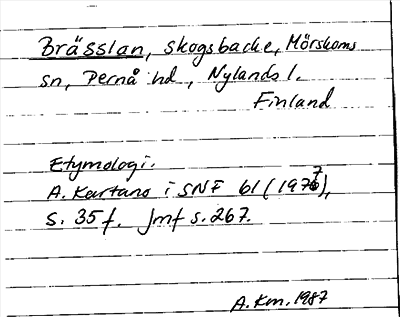 Brässlan, skogsbacke, Mörskoms
sn, Pernå hd, Nylands l.
Finland
Etymologi.
A. Kartano i SNF 61 (1977),
s. 35 f. Jmf s. 267.
A.Km. 1987